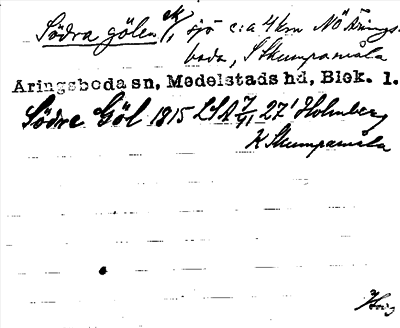 Södra gölen ek/, sjö c:a 4 km NÖ Årings-
boda, S Skumpamåla
Aringsboda sn, Medelstads hd, Blek. 1.
Södre Göl 1815 LSA 7/91 27 Holmberg
K Skumpamåla